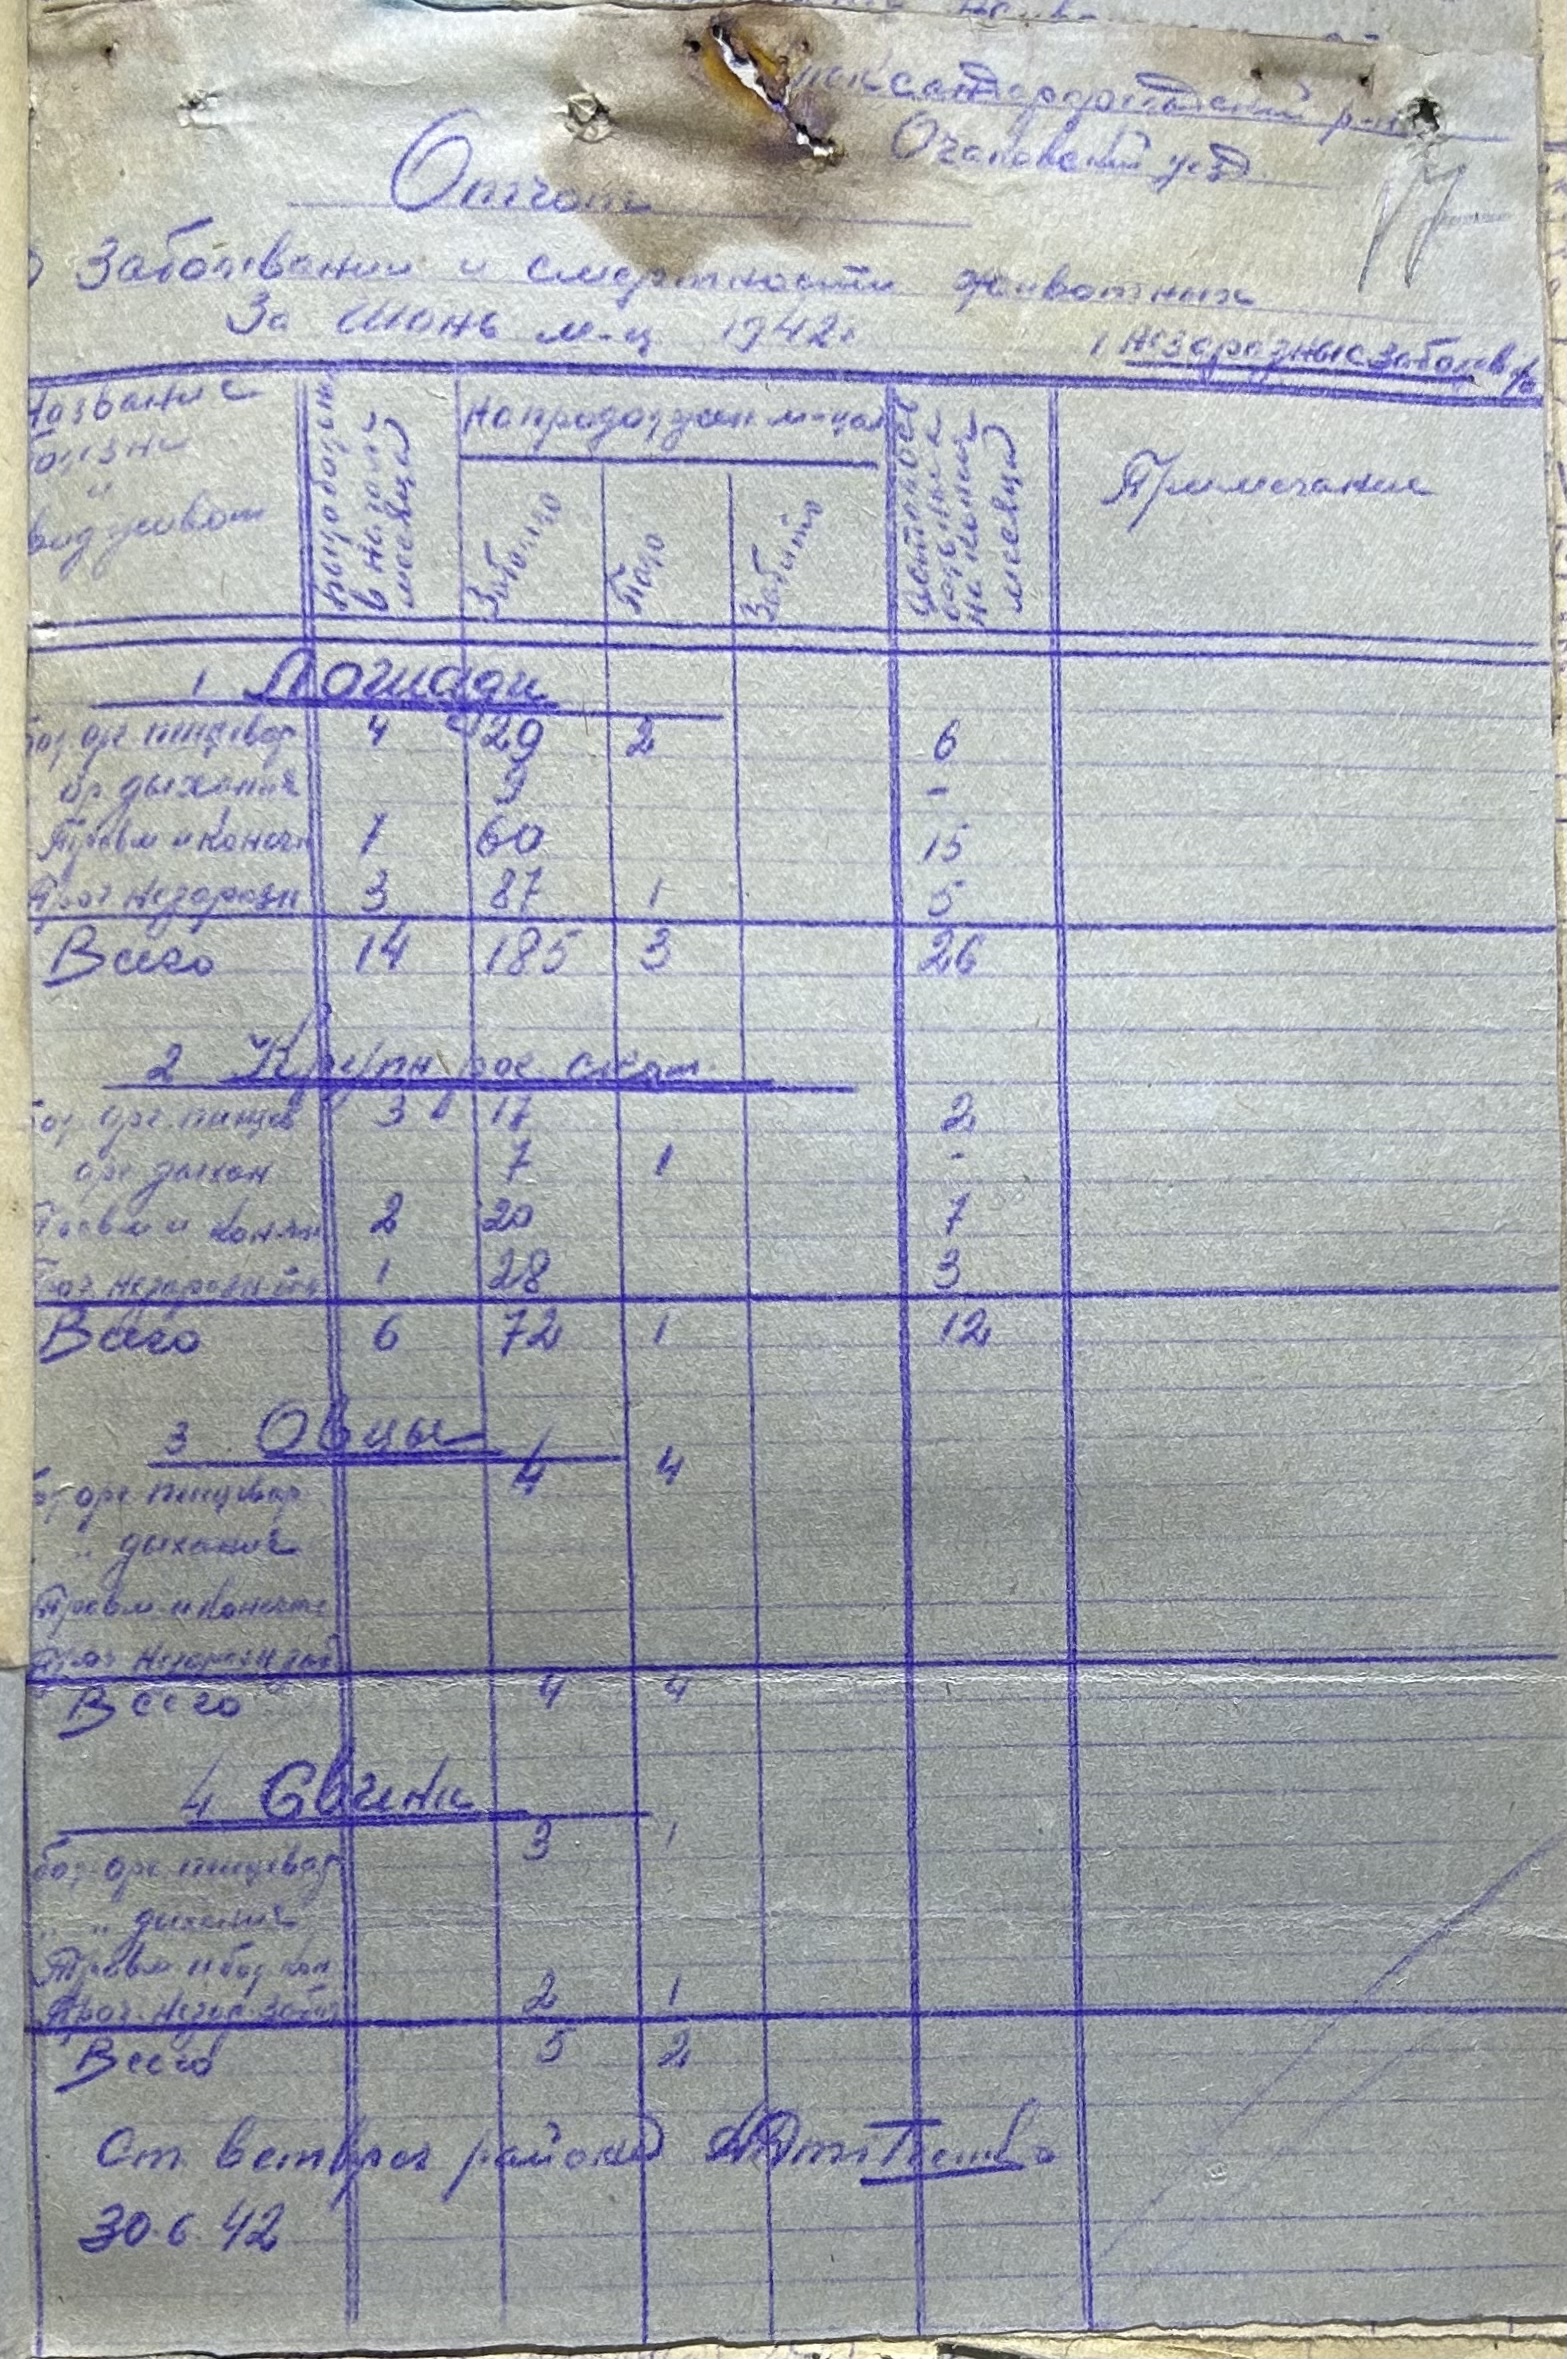 р-н
Очаковский уезд.
Отчот
Заболевании и смертности животных
За июнь м-ц 1942г
1 Незаразные заболев
Название
болезни
"
вид живот
было больных
в начале
месяца
На продолжен м-ца
Заболело
Пало
Забито
больных
на конец
месяца
Примечание
1 Лошади
бол. орг пищевар 4 29 2 6
ор. дыхания 9 -
Травм и конечн 7 60 15
Проч незарозн 3 87 1 5
Всего 14 185 3 26
2 Крупн рог скот.
бол. орг. пищев 3 17 2
орг дыхан 7 1 -
Травм и конечн 2 20 7
Проч незарозн 1 28 3
Всего 6 72 1 12
3 Овцы
бол орг пищевар 4 4
" дыхание
Травм и конечн
Проч незарозн заб
Всего 4 4
4 Свиньи
бол. орг пищевар 3 1
" " дыхание
Травм и бол кон
Проч. незар. забол 2 1
Всего 5 2
Ст. ветврач района
30.6.42